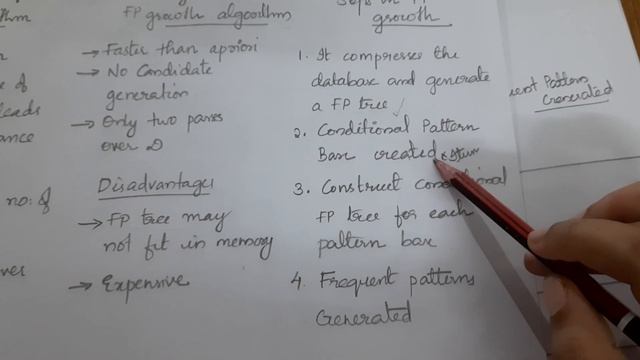 FP growth algorithm
→ Faster than apriori
→ No Candidate
generation
→ Only two passes
over D
Disadvantages
→ FP tree may
not fit in memory
→ Expensive
growth
1. It compresses the
database and generate
a FP tree
2. Conditional Pattern
Base created
3. Construct conditional
FP tree for each
pattern base
4. Frequent patterns
Generated
Pattern
Generated
no: of